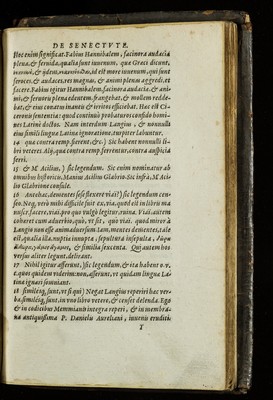 DE SENECTVTE
Hoc enim significat. Fabius Hannibalem, facinora audacia
plena, & feruida, qualia sunt iuuenum. que Graeci dicunt,
, & , id est more iuuenum, qui sunt
feroces, & audaces, res magnas, & animi plenas aggredi, et
facere. Fabius igitur Hannibalem, facinora audacia, & ani-
mi, & feruoris plena edentem, frangebat, & mollem redde-
bat, & eius conatus inanes & irritos efficiebat. Haec est Ci-
ceronis sententia: quod continuò probaturos confido homi-
nes Latinè doctos. Nam interdum Langius, & nonnulli
eius similes linguae Latinae ignoratione, turpiter labuntur.
14 qua contra remp. ferrent, & c.) Sic habent nonnulli li-
bri veteres. Alij, quae contra remp. ferrentur, contra auspicia
ferri.
15 & M Acilius, ) sic legendum. Sic enim nominatur ab
omnibus historicis, Manius Acilius Glabrio. Sic infrà, M. Aci-
lio Glabrione consule.
16 Ante hac, dementes sese flexere viai?) sic legendum cen-
seo. Neq, verò mihi difficile fuit ex, via, quod est in libris ma
nuscr. facere, viai. pro quo vulgò legitur, ruina. Viai. autem
cohaeret cum aduerbio, quò, vt sit, quò viai. quod miror à
Langio non esse animaduersum. Iam, mentes dementes, tale
est, qualia illa, nuptiae innuptae: sepultura insepulta,
, & similia sexcenta. Qui autem hos
versus aliter legunt, delirant.
17 Nihil igitur afferunt, )sic legendum. & ita habent o. v,
è quos quidem viderim: non, asserunt, vt quidam linguae La-
tinae ignari somniant.
18 similesq, sunt, vt si qui) Negat Langius reperiri haec ver-
ba, similesq, sunt, in vno libro vetere, & censet delenda. Ego
& in codicibus Memmianis integra reperi, & in membra-
na antiquissima P. Danielis Aureliani, iuuenis eruditis
T